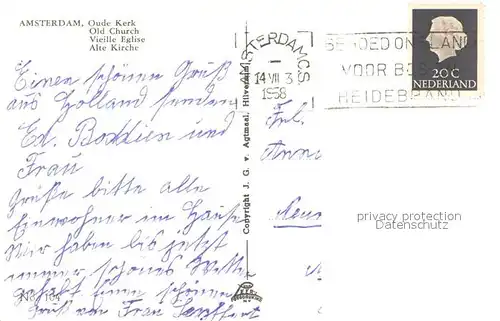 AMSTERDAM, Oude Kerk
Old Church
Vieille Eglise
Alte Kirche
Einen schönen Gruß
aus Holland senden
Ed. Boddien und
Frau
Grüße bitte alle
Einwohner im Hause
Wir haben bis jetzt
immer schönes Wetter
gehabt einen schönen
Gruß von Frau
No. 104
Copyright J. G. v. Agtmaal, Hilversum
AMSTERDAM C.S.
14 VII 3
1958
BEHOED ONS LAND
VOOR BOS- EN
HEIDEBRAND
20 C
NEDERLAND
Frl.
Anna
privacy protection
Datenschutz